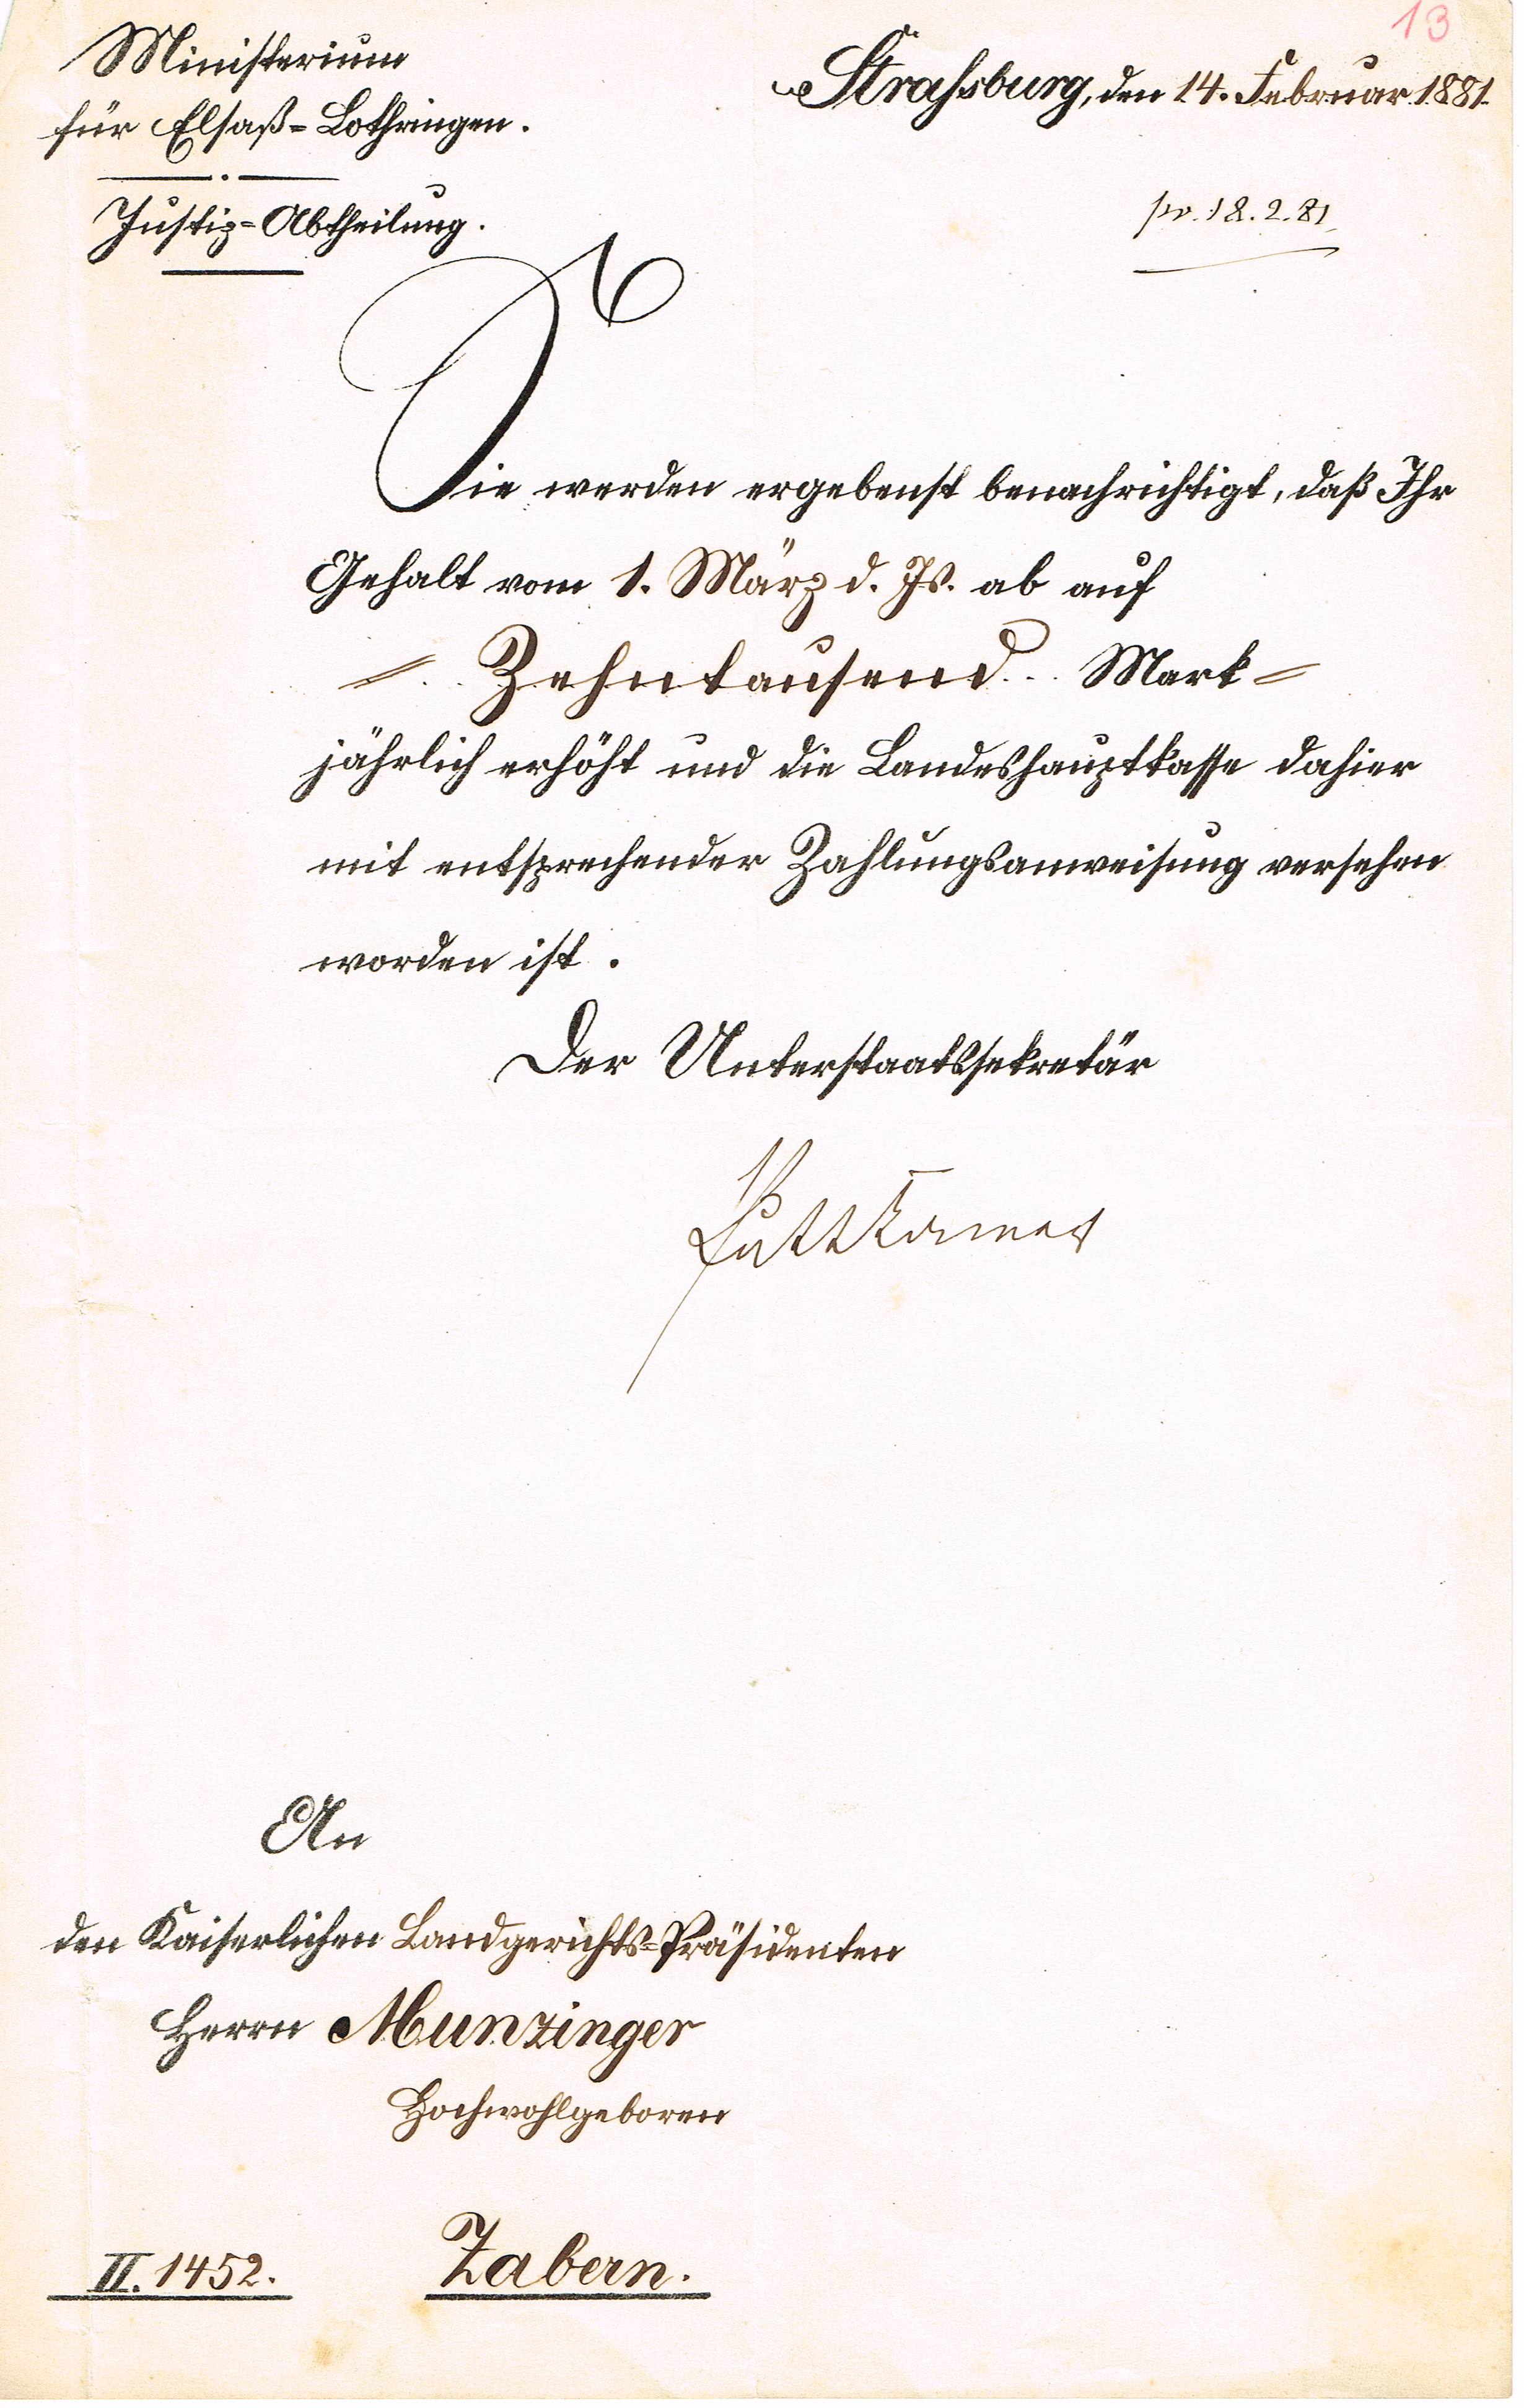 13
Ministerium
für Elsaß-Lothringen.
Justiz-Abtheilung.
Straßburg, den 14. Februar 1881.
pr. 18.2.81
Sie werden ergebenst benachrichtigt, daß Ihr
Gehalt vom 1. März d. Js. ab auf
Zehntausend Mark
jährlich erhöht und die Landeshauptkasse dahier
mit entsprechender Zahlungsanweisung versehen
worden ist.
Der Unterstaatssekretär
Puttkamer
An
den Kaiserlichen Landgerichts-Präsidenten
Herrn Munzinger
Hochwohlgeboren
II. 1452.
Zabern.